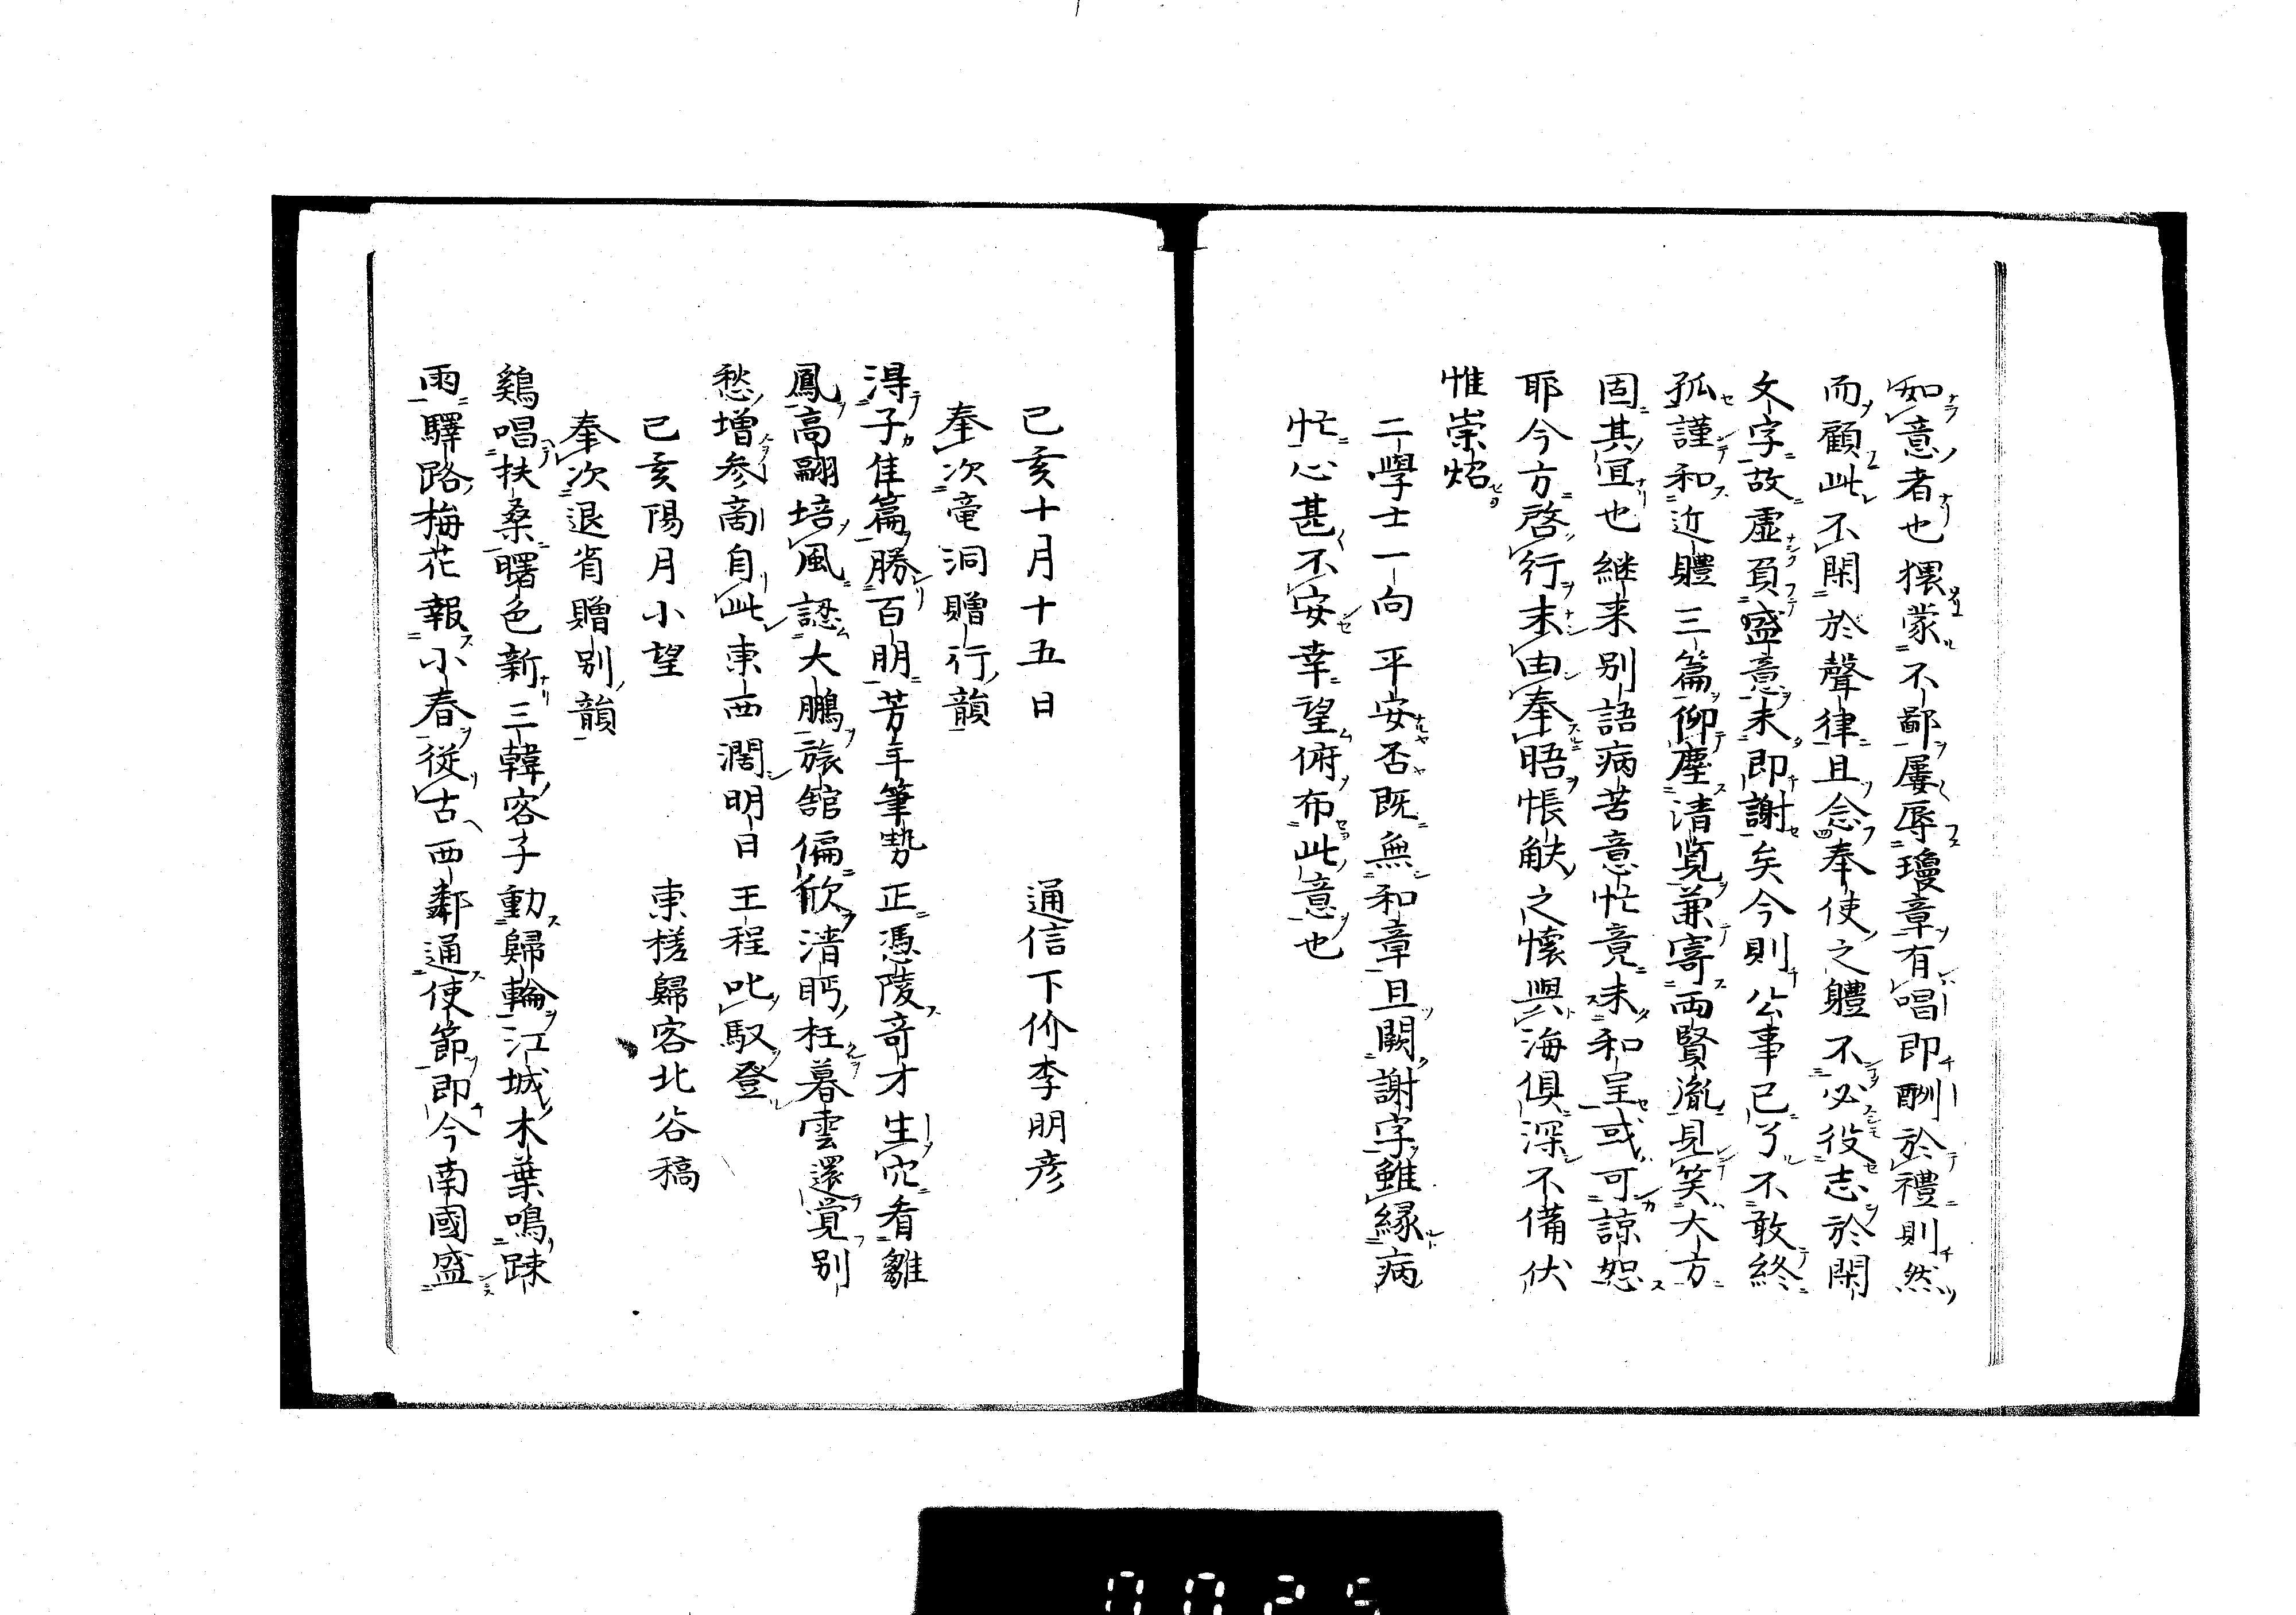 知意者也猥蒙不鄙屢辱瓊章有唱即酬於禮則然
而顧此不閑於聲律且念奉使之體不必役志於閑
文字故虚負盛意未即謝矣今則公事已了不敢終
孤謹和近體三篇仰塵清覧兼寄両賢胤見笑大方
固其宜也継来別語病苦意忙竟未和呈或可諒恕
耶今方啓行末由奉晤悵觖之懐與海俱深不備伏
惟崇炤
二學士一向平安否既無和章且闕謝字雖縁病
忙心甚不安幸望俯布此意也
己亥十月十五日　通信下价李明彦
奉次竜洞贈行韻
得子佳篇勝百朋芳年筆勢正憑陵奇才生穴看雛
鳳高翮培風認大鵬旅舘偏欣清眄枉暮雲還覚別
愁増参商自此東西濶明日王程叱馭登
己亥陽月小望　東槎歸客北谷稿
奉次退省贈別韻
鷄唱扶桑曙色新三韓客子動歸輪江城木葉鳴踈
雨驛路梅花報小春従古西鄰通使節即今南國盛
0025